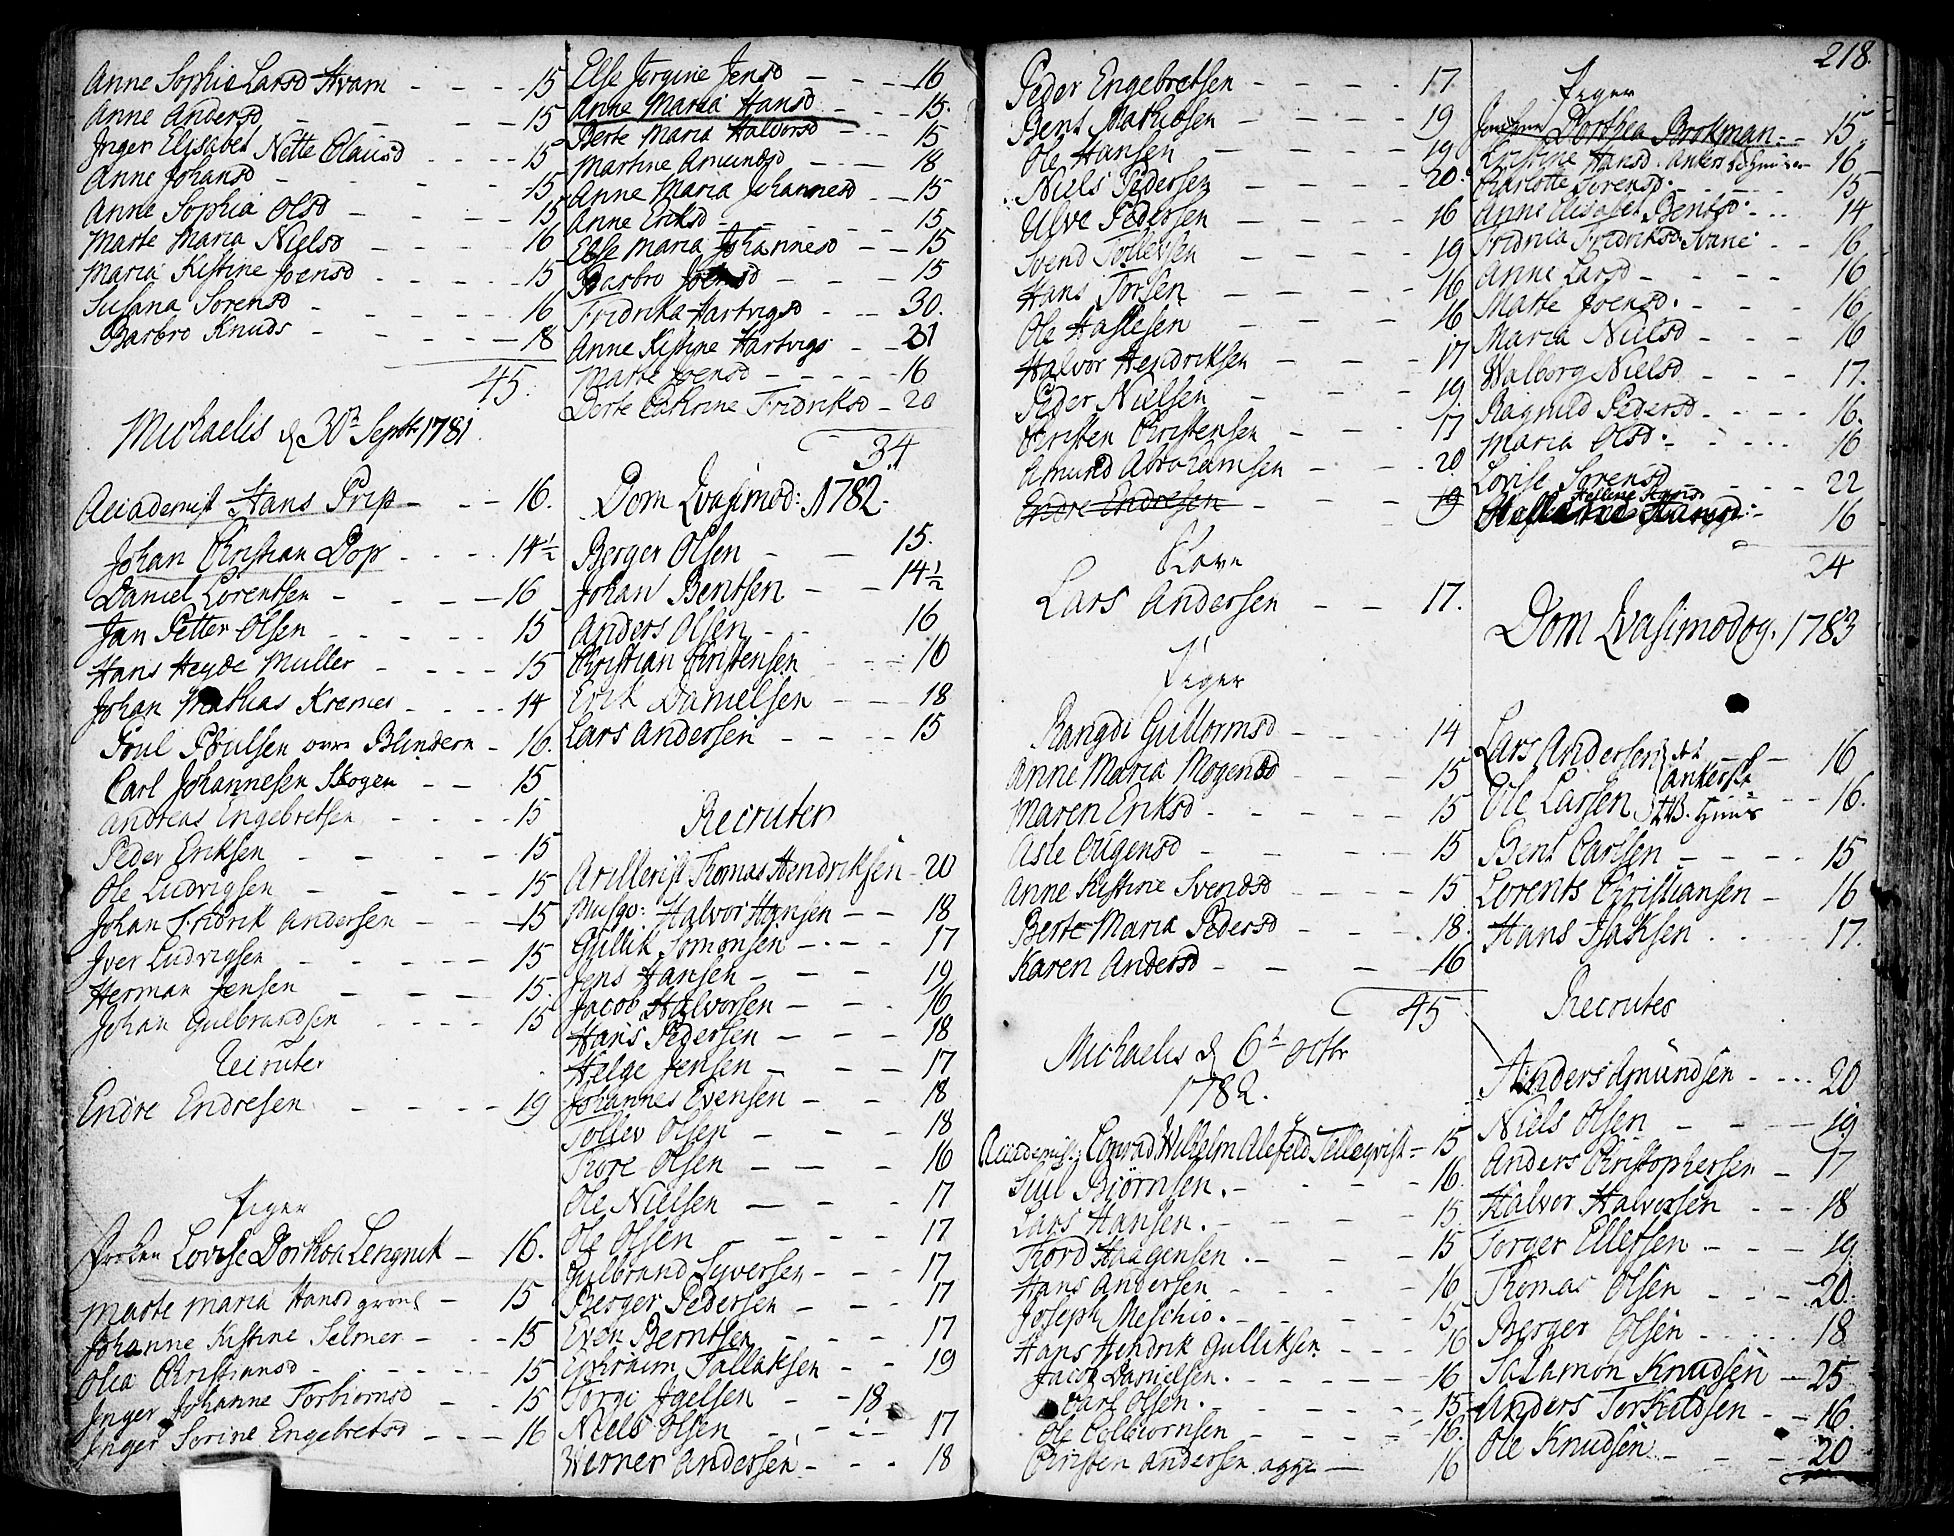 Anne Sophie Larsd Hvam - - - 15
Anne Andersd - - - 15
Inger Elisabet Nette Clausd - - - 15
Anne Johansd - - - 15
Anne Sophia Olsd - - - 15
Marte Maria Nielsd - - - 16
Maria Kistine Joensd - - - 15
Susana Sorensd - - - 16
Barbro Knuds - - - 18
45.
Michaelis d 30te Septr 1781
Academist Hans Prip - - 16.
Johan Christian Dop - - - 14½
Daniel Lorentsen - - - 16
Jan Petter Olsen - - - 15
Hans Heyde Muller - - - 15
Johan Mathias Kremer - - - 14
Poul Poulsen Blindern - 16.
Carl Johannesen Skogen - - 15
Andreas Engebretsen - - - 15
Peder Eriksen - - - 15
Ole Ludvigsen - - - 15
Johan Fridrik Andersen - - - 15
Iver Ludvigsen - - - 15
Herman Jensen - - - 15.
Johan Gulbrandsen - - - 15
Recruter
Endre Endresen - - - 19
Piger
Frøken Lovise Dorthea Lengnik - 16.
Marte Maria Hansd - 15
Johanne Kistine Selmer - - - 15
Olea Christiansd - - - 15
Inger Johanne Torbiørnsd - - 15
Inger Sorine Engebretsd - - - 16
Else Jorgine Jensd - - - 16
Anne Maria Hansd - - - 15.
Berte Maria Halvorsd - - 15
Martine Amundsd - - - 18
Anne Maria Johannesd - - 15
Anne Eriksd - - - 15
Else Maria Johannesd - - 15
Barbro Joensd - - - 15
Fridrika Hartvigsd - - - 30.
Anne Kistine Hartvigs - - 31
Marte Joensd - - - 16
Berte Cathrine Fridriksd - 20
34
Dom Qvasimod: 1782.
Berger Olsen - - 15.
Johan Bentsen - - 14½
Anders Olsen - - 16
Christian Christensen - - - 16
Erik Danielsen - - - 18
Lars Andersen - - - 15
Recruter
Artillerist Thomas Hendriksen - 20
Musqv: Halvor Hansen - - 18
Gullik Somonsen - - - 17
Jens Hansen - - - 19
Jacob Halvorsen - - - 16
Hans Pedersen - - - 18
Helge Jensen - - - 17
Johannes Evensen - - - 18
Tollev Olsen - - - 18
Thore Olsen - - - 16
Ole Nielsen - - - 17
Ole Olsen - - - 17
Gulbrand Syversen - - - 17
Berger Pedersen - - - 17
Even Berntsen - - - 17
Ephraim Tallaksen - - 19
Torge - - 18
Niels Olsen - - - 17
Werner Andersen - - - 18
Peder Engebretsen - - - 17.
Bent Mathisen - - - 19
Ole Hansen - - - 19
Niels Pedersen - - - 20.
Ulve Pedersen - - - 16
Svend Tollevsen - - - 19
Hans Torsen - - - 16
Ole Haslesen - - - 16
Halvor Hendriksen - - - 17
Peder Nielsen - - - 19
Christen Christensen - - - 17
Amund Abrahamsen - - - 20
Endre Endresen - - - 19
Slave
Lars Andersen - - 17.
Piger
Rangdi Gullormsd - - - 14
Anne Maria Mogensd - - - 15
Maren Eriksd - - - 15
Asle Eugensd - - - 15
Anne Kistine Svendsd - - - 15
Berte Maria Pedersd - - - 18.
Karen Andersd - - - 16
45
Michaelis d 6te Octbr
1782.
Academist: Conrad Wilhelm Alefeld Tellequist - 15
Siul Biørnsen - - - 16.
Lars Hansen - - - 15.
Thord Haagensen - - - 15
Hans Andersen - - - 16
Joseph Meschio - - - 15.
Hans Hendrik Gulliksen - - - 16
Jacob Danielsen - - - 16
Carl Olsen - - - 15
Ole Colbiørnsen - - - 16.
Christen Andersen agge - 16
218.
Piger
Dorthea Brokman - - 15.
Kristine Hansd. Ankers - 16
Charlotte Sorensd. - - - 15
Anne Elisabet Bentsd. - - - 14
Fridrica Fridriksd. Svane - - 16
Anne Larsd - - - 16
Marte Joensd. - - - 16
Maria Nielsd - - - 16
Walborg Nielsd - - - 17.
Ragnild Pedersd - - - 16.
Maria Olsd. - - - 16
Lovise Sorensd - - - 22
Hellene Hansd
- 16
24
Dom Qvasimodog. 1783
Lars Andersen - - 16
Ankerske
Ole Larsen - - 16.
Bent Carlsen - - - 15
Lorents Christiansen - 16
Hans Isaksen - - - 17.
Recruter
Anders Amundsen - - - 20
Niels Olsen - - - 19
Anders Christophersen - 17
Halvor Halvorsen - - - 18
Torger Ellefsen - - - 19.
Thomas Olsen - - - 20.
Berger Olsen - - - 18
Salamon Knudsen - 25
Anders Torkildsen - - 16.
Ole Knudsen - - - 20